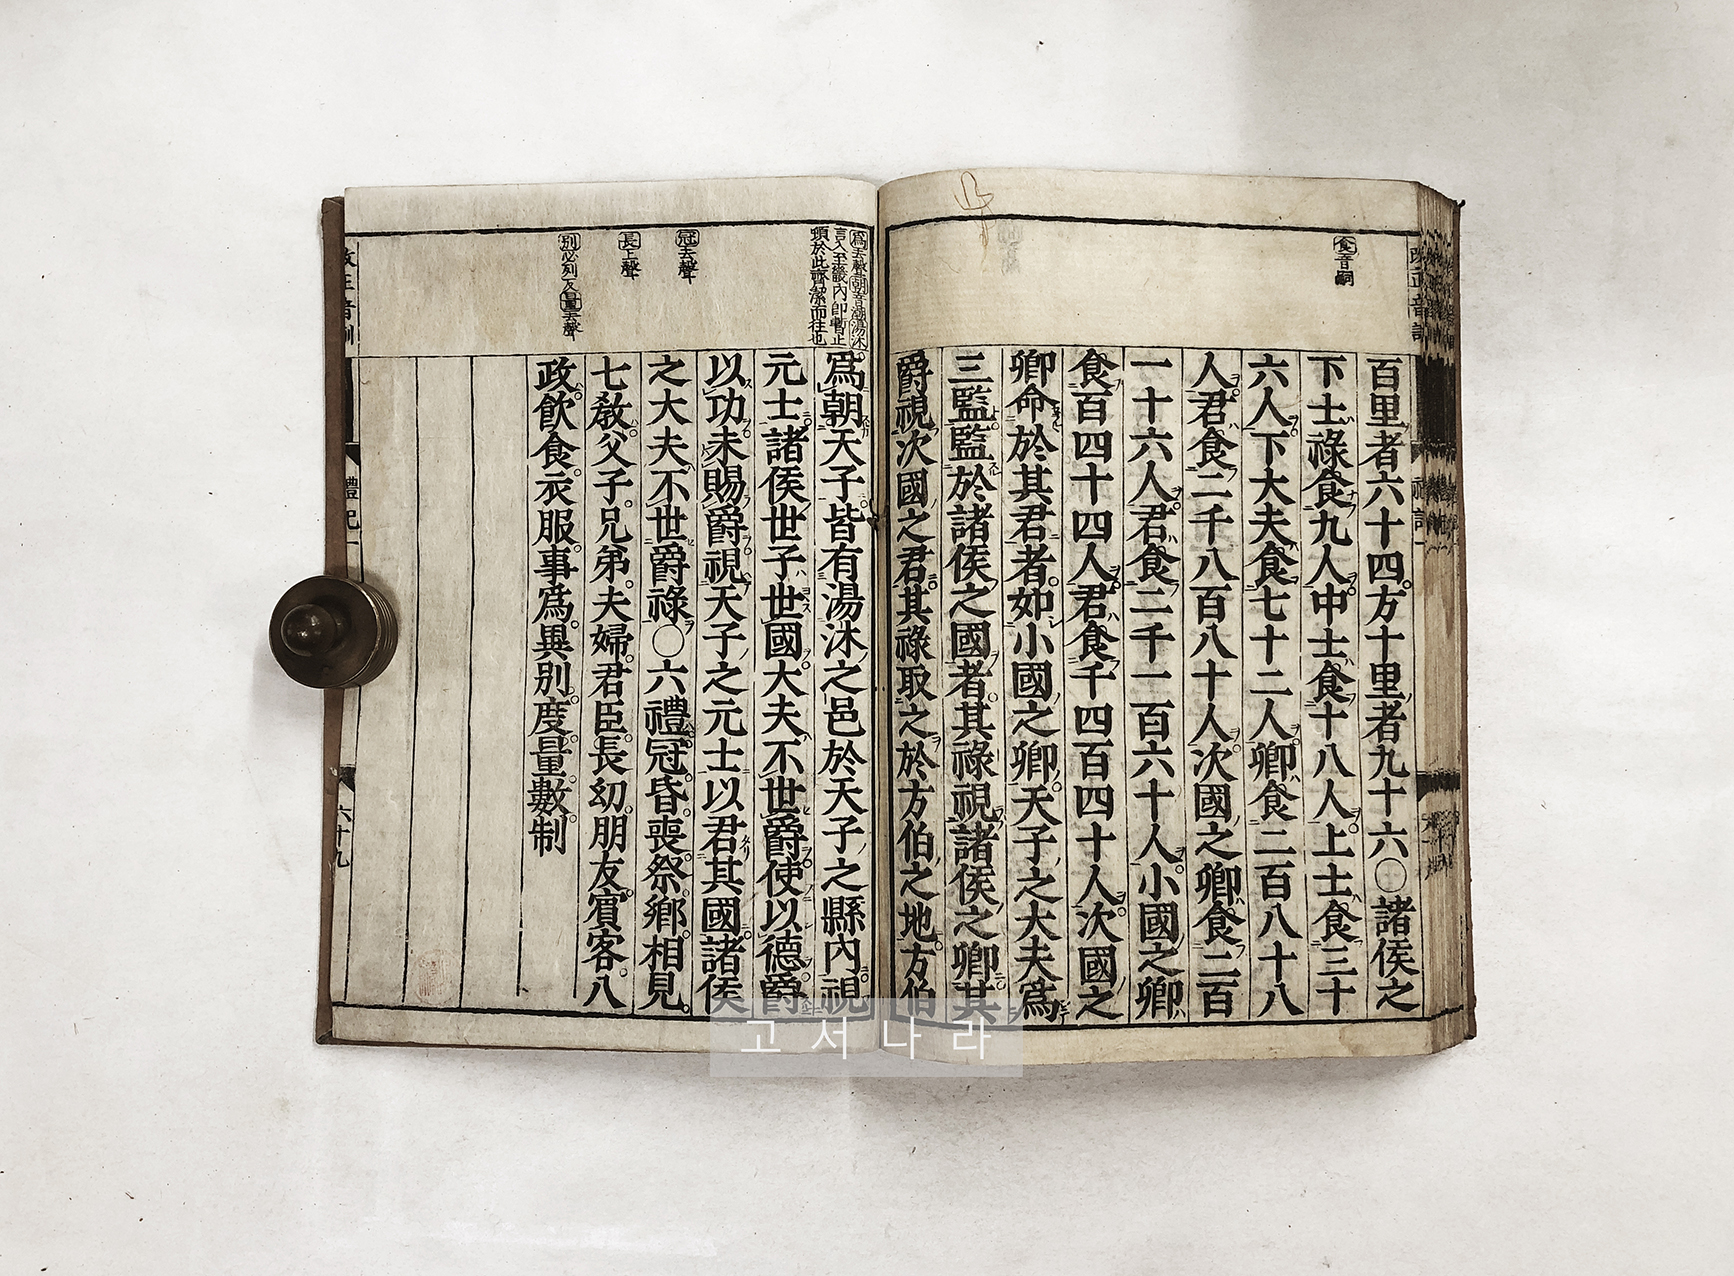 食音嗣
百里者六十四方十里者九十六○諸侯之
下士祿食九人中士食十八人上士食三十
六人下大夫食七十二人卿食二百八十八
人君食二千八百八十人次國之卿食二百
一十六人君食二千一百六十人小國之卿
食百四十四人君食千四百四十人次國之
卿命於其君者如小國之卿天子之大夫爲
三監監於諸侯之國者其祿視諸侯之卿其
爵視次國之君其祿取之於方伯之地方伯
爲去聲朝音潮湯沐
言入至畿內卽暫止
頓於此齊潔而往也
冠去聲
長上聲
別必列反量去聲
爲朝天子皆有湯沐之邑於天子之縣內視
元士諸侯世子世國大夫不世爵使以德爵
以功未賜爵視天子之元士以君其國諸侯
之大夫不世爵祿○六禮冠昏喪祭鄉相見
七敎父子兄弟夫婦君臣長幼朋友賓客八
政飮食衣服事爲異別度量數制
改正音訓
禮記一
六十九
고서나라